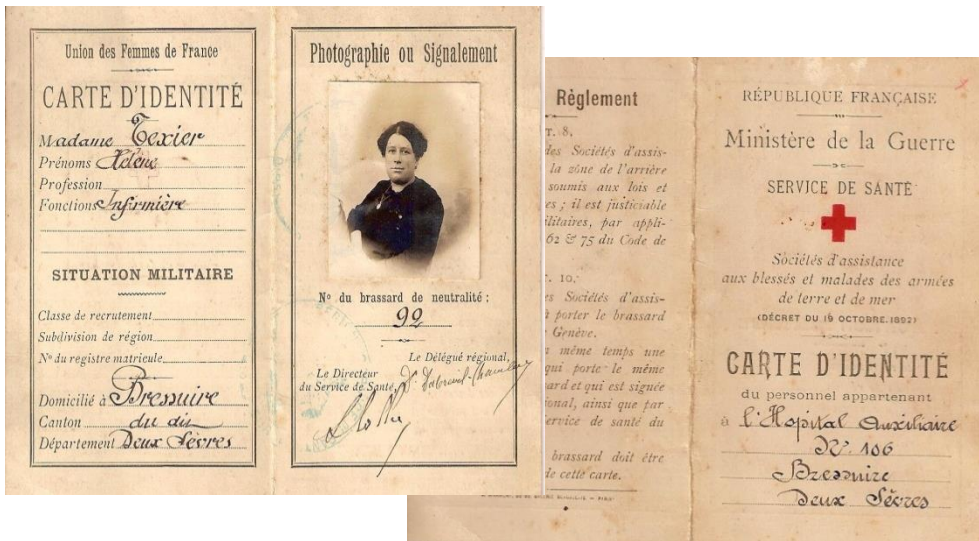 Union des Femmes de France
CARTE D'IDENTITÉ
Madame Texier
Prénoms Hélène
Profession
Fonctions Infirmière
SITUATION MILITAIRE
Classe de recrutement
Subdivision de région
No du registre matricule
Domicilié à Bressuire
Canton du dit
Département Deux Sèvres
Photographie ou Signalement
No du brassard de neutralité :
92
Le Délégué régional,
Le Directeur
du Service de Santé,
Règlement
T. 8,
des Sociétés d'assis-
la zone de l'arrière
soumis aux lois et
es ; il est justiciable
ilitaires, par appli-
62 & 75 du Code de
T. 10.
es Sociétés d'assis-
à porter le brassard
Genève.
même temps une
qui porte le même
ard et qui est signée
onal, ainsi que par
ervice de santé du
brassard doit être
de cette carte.
RÉPUBLIQUE FRANÇAISE
Ministère de la Guerre
SERVICE DE SANTÉ
Sociétés d'assistance
aux blessés et malades des armées
de terre et de mer
(DÉCRET DU 19 OCTOBRE 1892)
CARTE D'IDENTITÉ
du personnel appartenant
à l'Hospital Auxiliaire
No. 106
Bressuire
Deux Sèvres